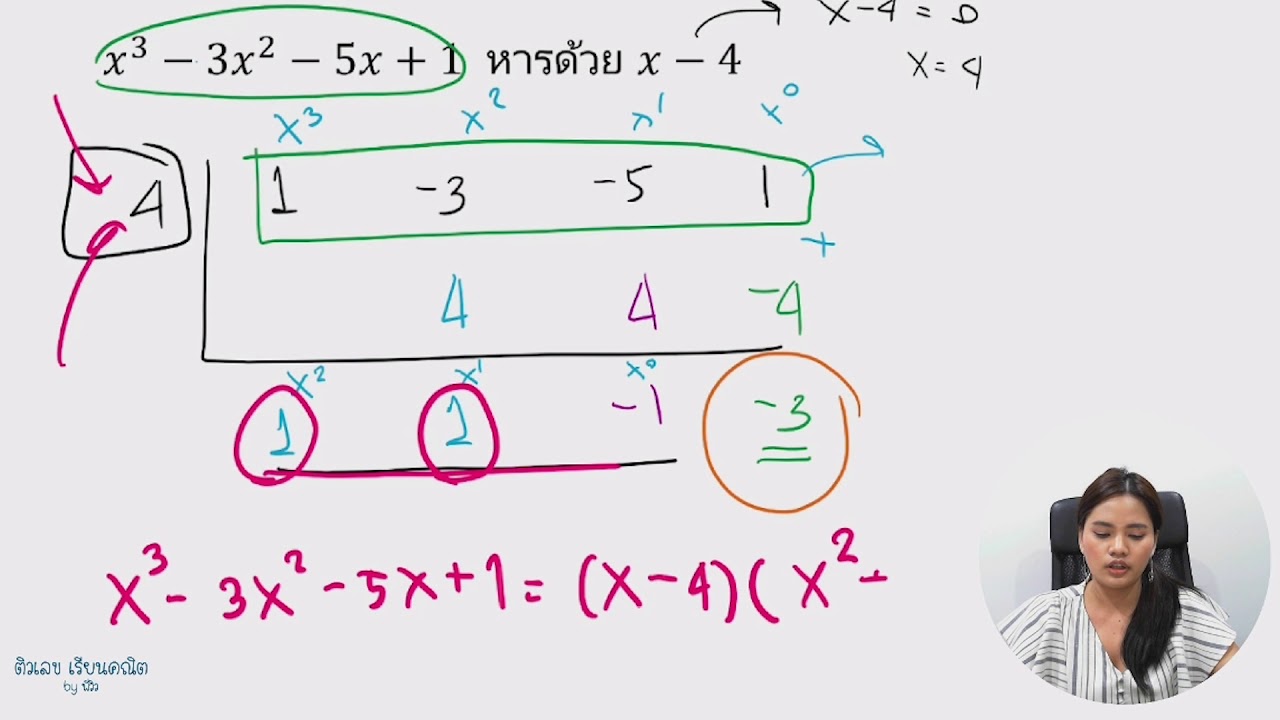 x - 4 = 0
x³ − 3x² − 5x + 1 หารด้วย x − 4
x = 4
x³ x² x¹ x⁰
4 1 -3 -5 1
+
4 4 -4
x² x¹ x⁰
1 1 -1 -3
x³ - 3x² - 5x + 1 = (x - 4)( x² +
ติวเลข เรียนคณิต
by พี่วิว